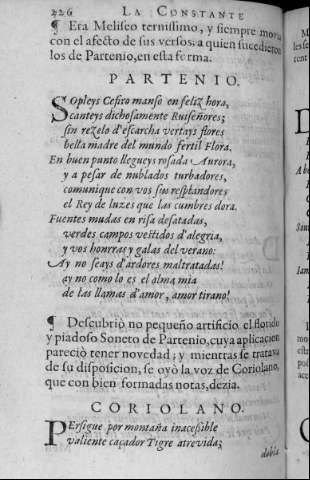 226 LA CONSTANTE
¶ Era Meliseo ternissimo, y siempre movia
con el afecto de sus versos, a quien sucedieron
los de Partenio, en esta forma.
PARTENIO.
Sopleys Cefiro manso en feliz hora,
canteys dichosamente Ruiseñores;
sin rezelo d'escarcha vertays flores
bella madre del mundo fertil Flora.
En buen punto llegueys rosada Aurora,
y a pesar de nublados turbadores,
comunique con vos sus resplandores
el Rey de luzes que las cumbres dora.
Fuentes mudas en risa desatadas,
verdes campos vestidos d'alegria,
y vos honrras y galas del verano:
Ay no seays d'ardores maltratadas!
ay no como lo es el alma mia
de las llamas d'amor, amor tirano!
¶ Descubriò no pequeño artificio el florido
y piadoso Soneto de Partenio, cuya aplicacion
pareciò tener novedad; y mientras se tratava
de su disposicion, se oyò la voz de Coriolano,
que con bien formadas notas, dezia.
CORIOLANO.
Persigue por montaña inacessible
valiente caçador Tigre atrevida;
dobla